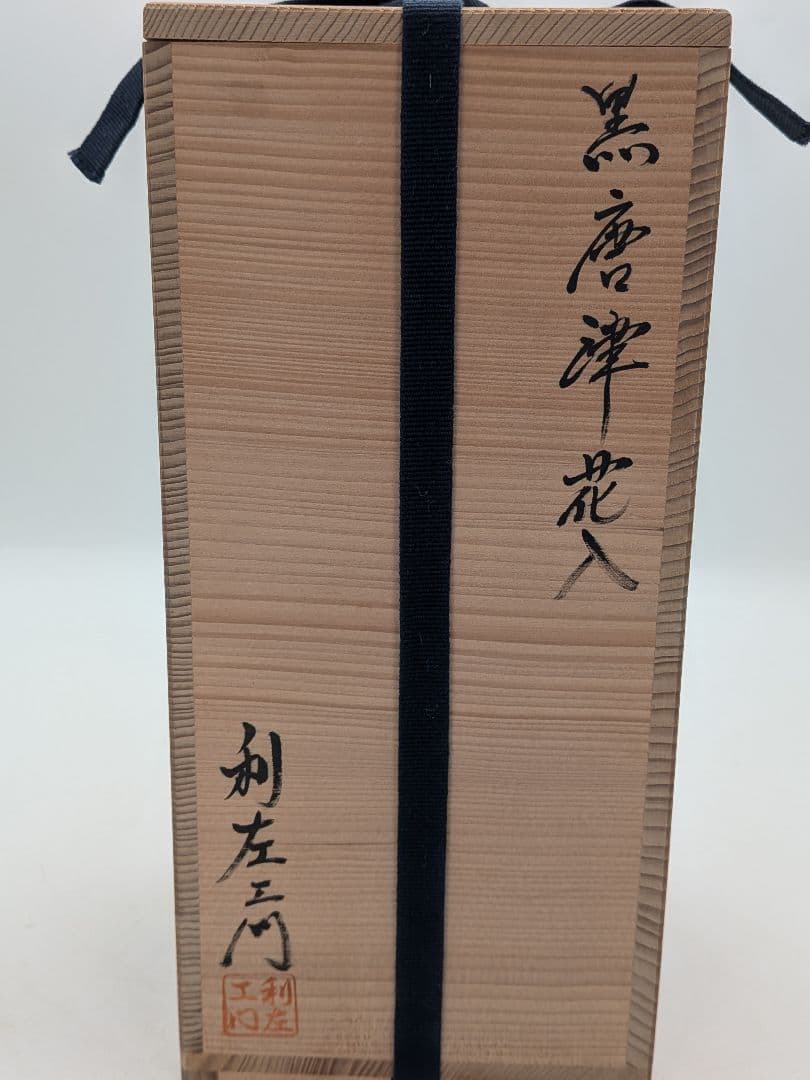 黒唐津花入
利左エ門
利左
エ門